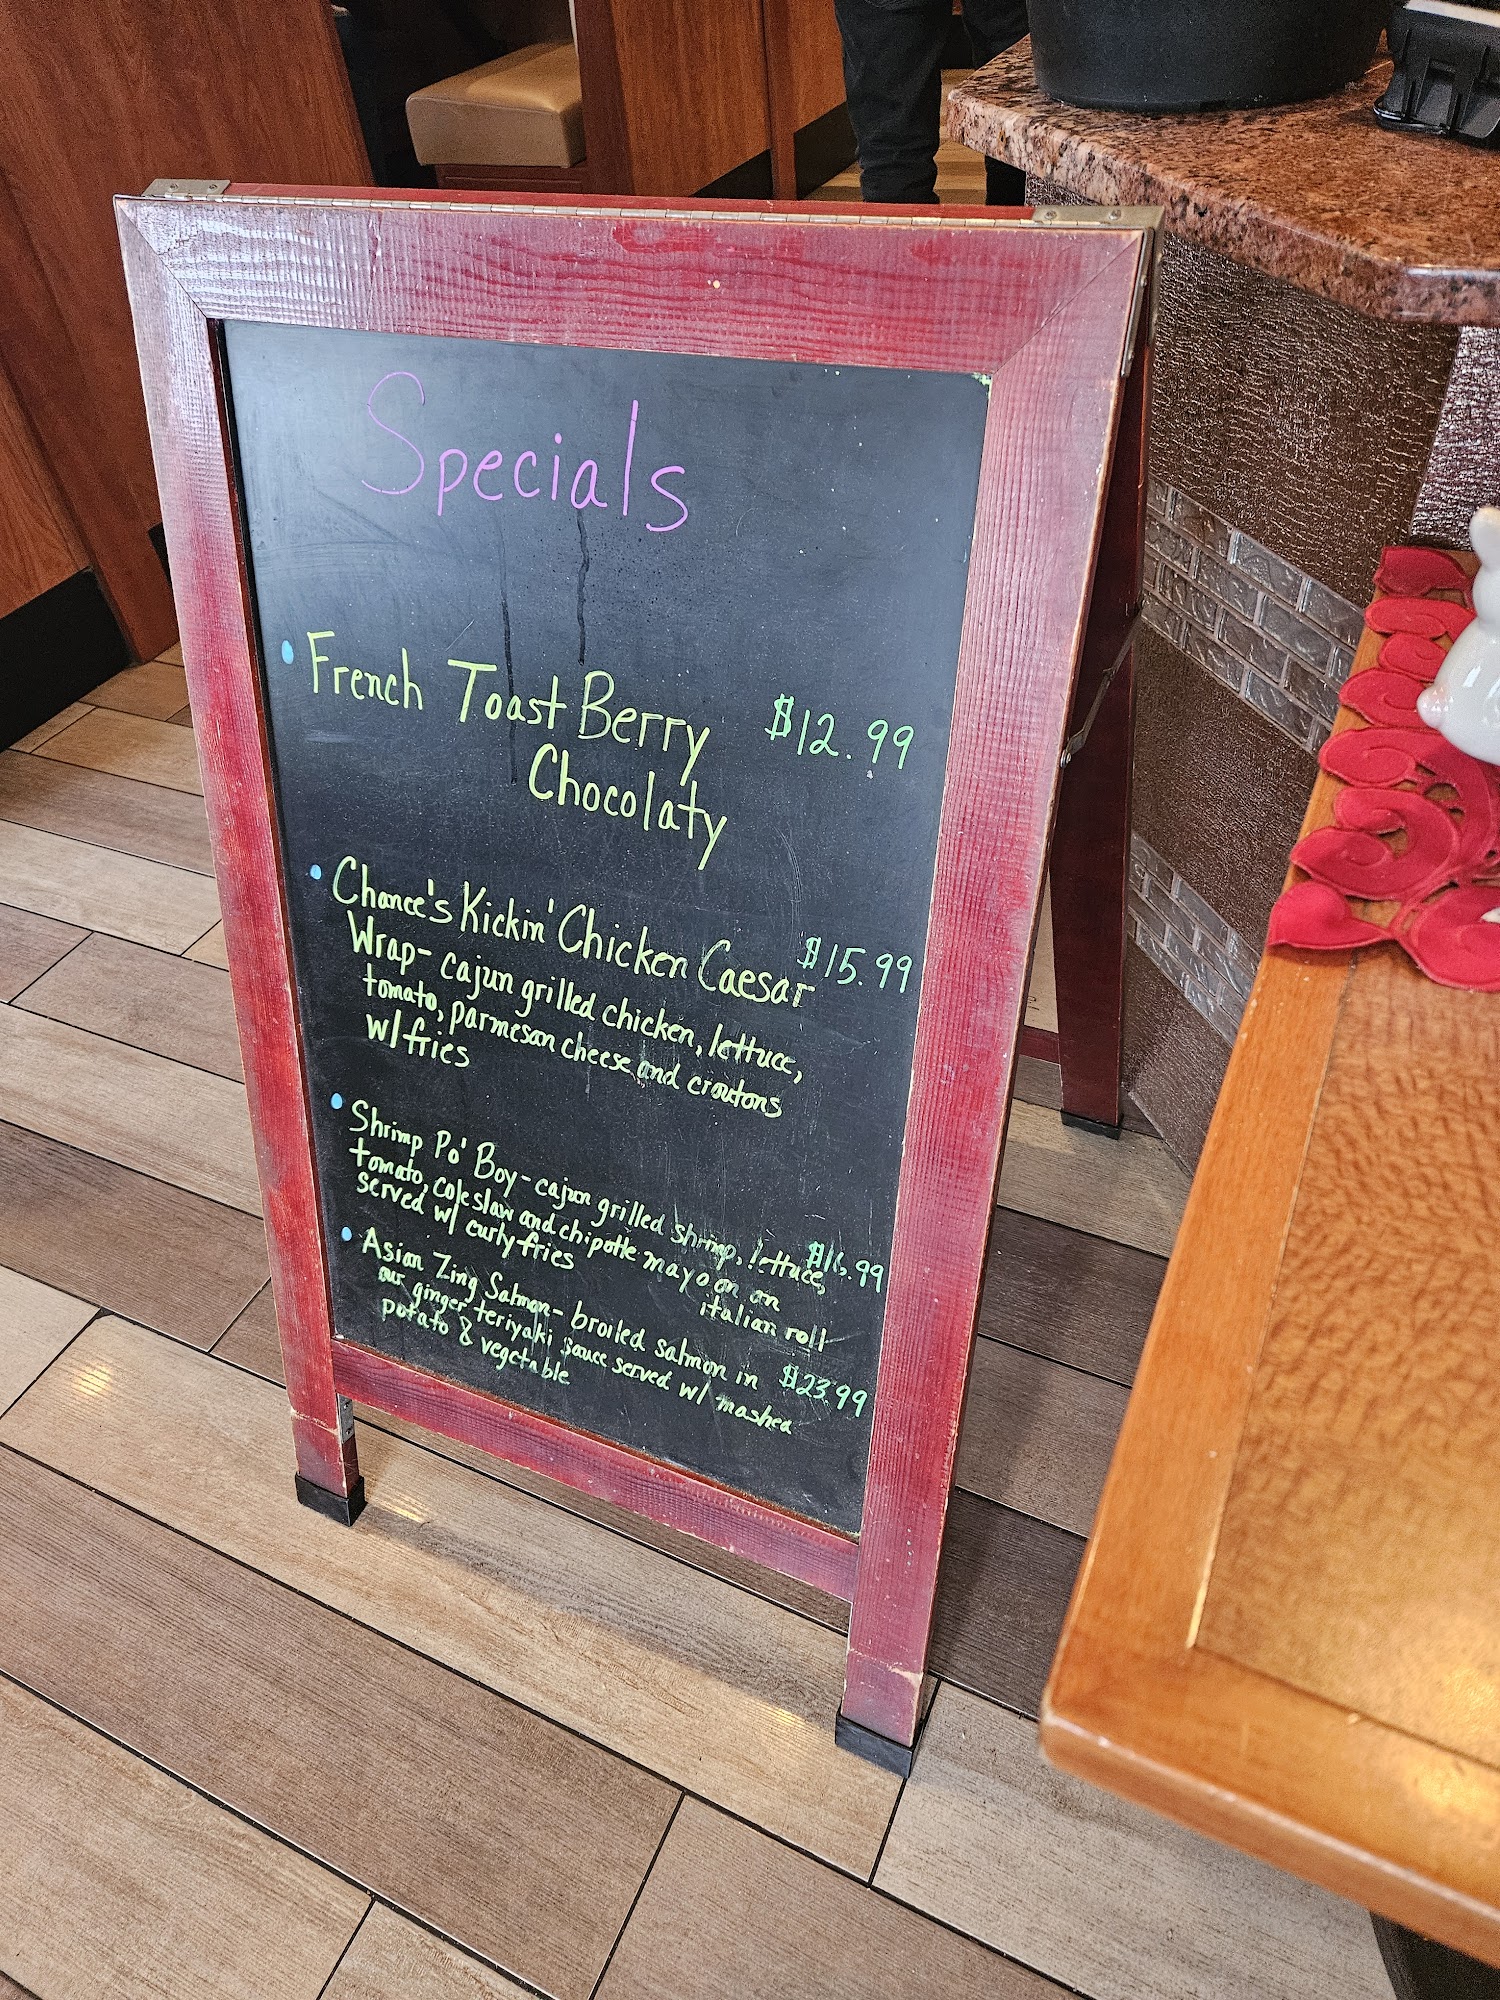 Specials
French Toast Berry $12.99
Chocolaty
Chance's Kickin' Chicken Caesar $15.99
Wrap- cajun grilled chicken, lettuce,
tomato, parmesan cheese and croutons
w/fries
Shrimp Po' Boy - cajun grilled shrimp, lettuce, $16.99
tomato, coleslaw and chipotle mayo on an
italian roll
served w/ curly fries
Asian Zing Salmon- broiled salmon in $23.99
our ginger teriyaki sauce served w/ mashed
potato & vegetable